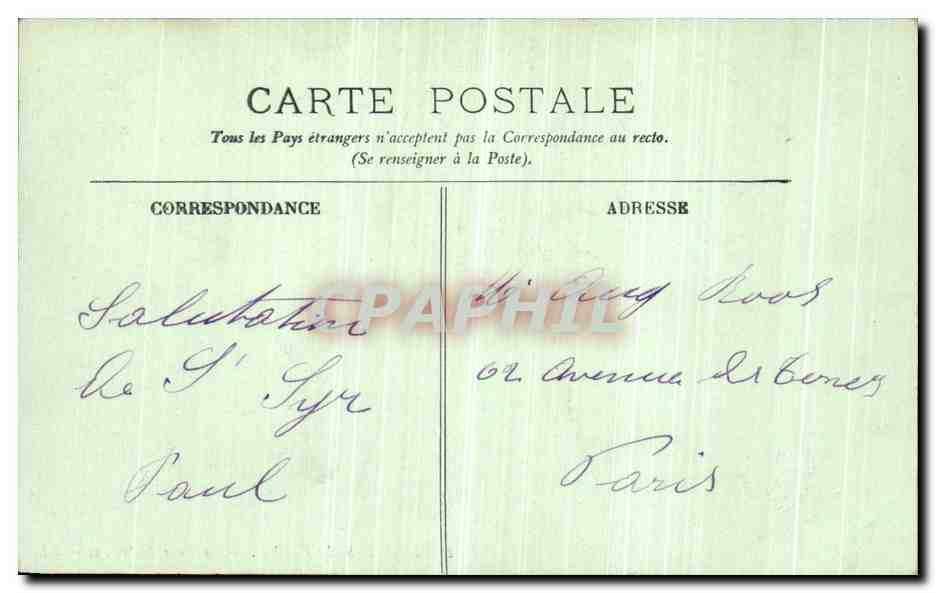 CARTE POSTALE
Tous les Pays étrangers n'acceptent pas la Correspondance au recto.
(Se renseigner à la Poste).
CORRESPONDANCE
ADRESSE
Salutation
de St Syr
Paul
Aug Roos
62 Avenue des
Paris
CPAPHIL